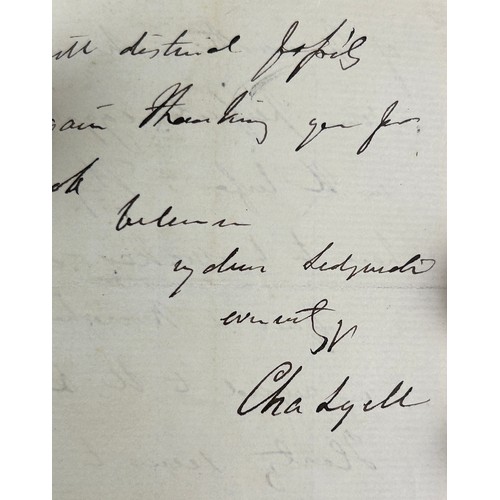 distinct fossils
again thanking you for
ok
believe me
my dear Sedgwick
ever most yrs
Cha Lyell